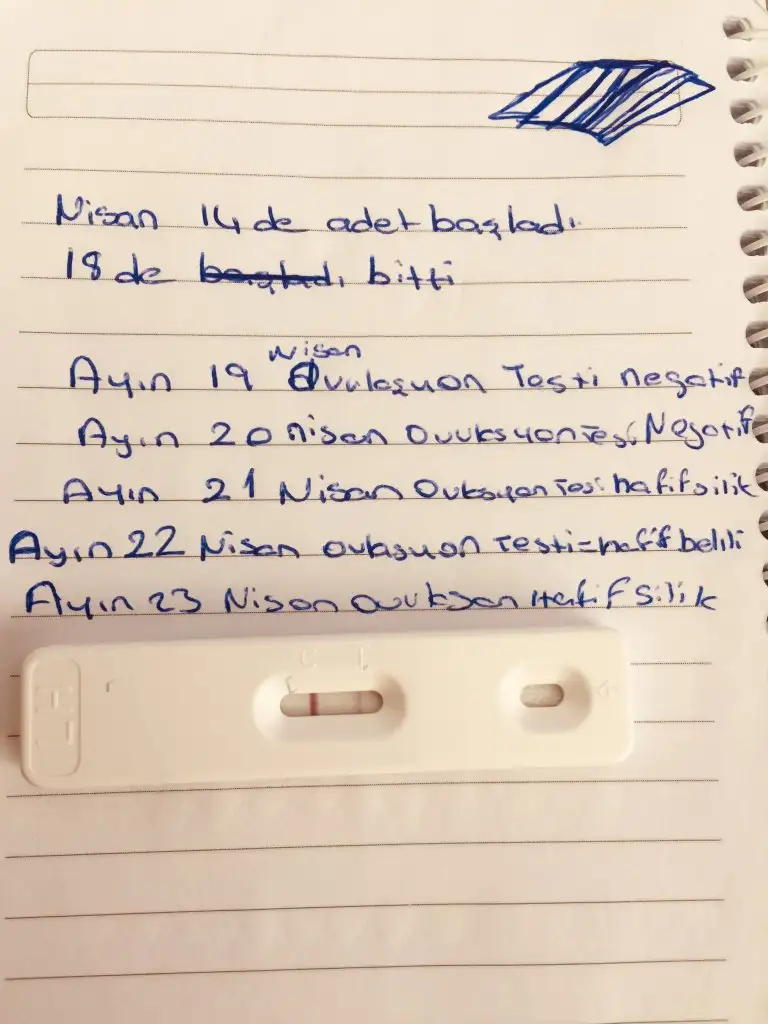 Nisan 14 de adet başladı.
18 de başladı, bitti
Nisan
Ayın 19 Ovulasyon Testi negatif
Ayın 20 nisan Ovuksyon Tesi Negatif
Ayın 21 Nisan Ovksyon Tesi hafif silik
Ayın 22 Nisan ovlasyon Testi=hafif belili
Ayın 23 Nisan Ovuksyon Hafif silik
C T